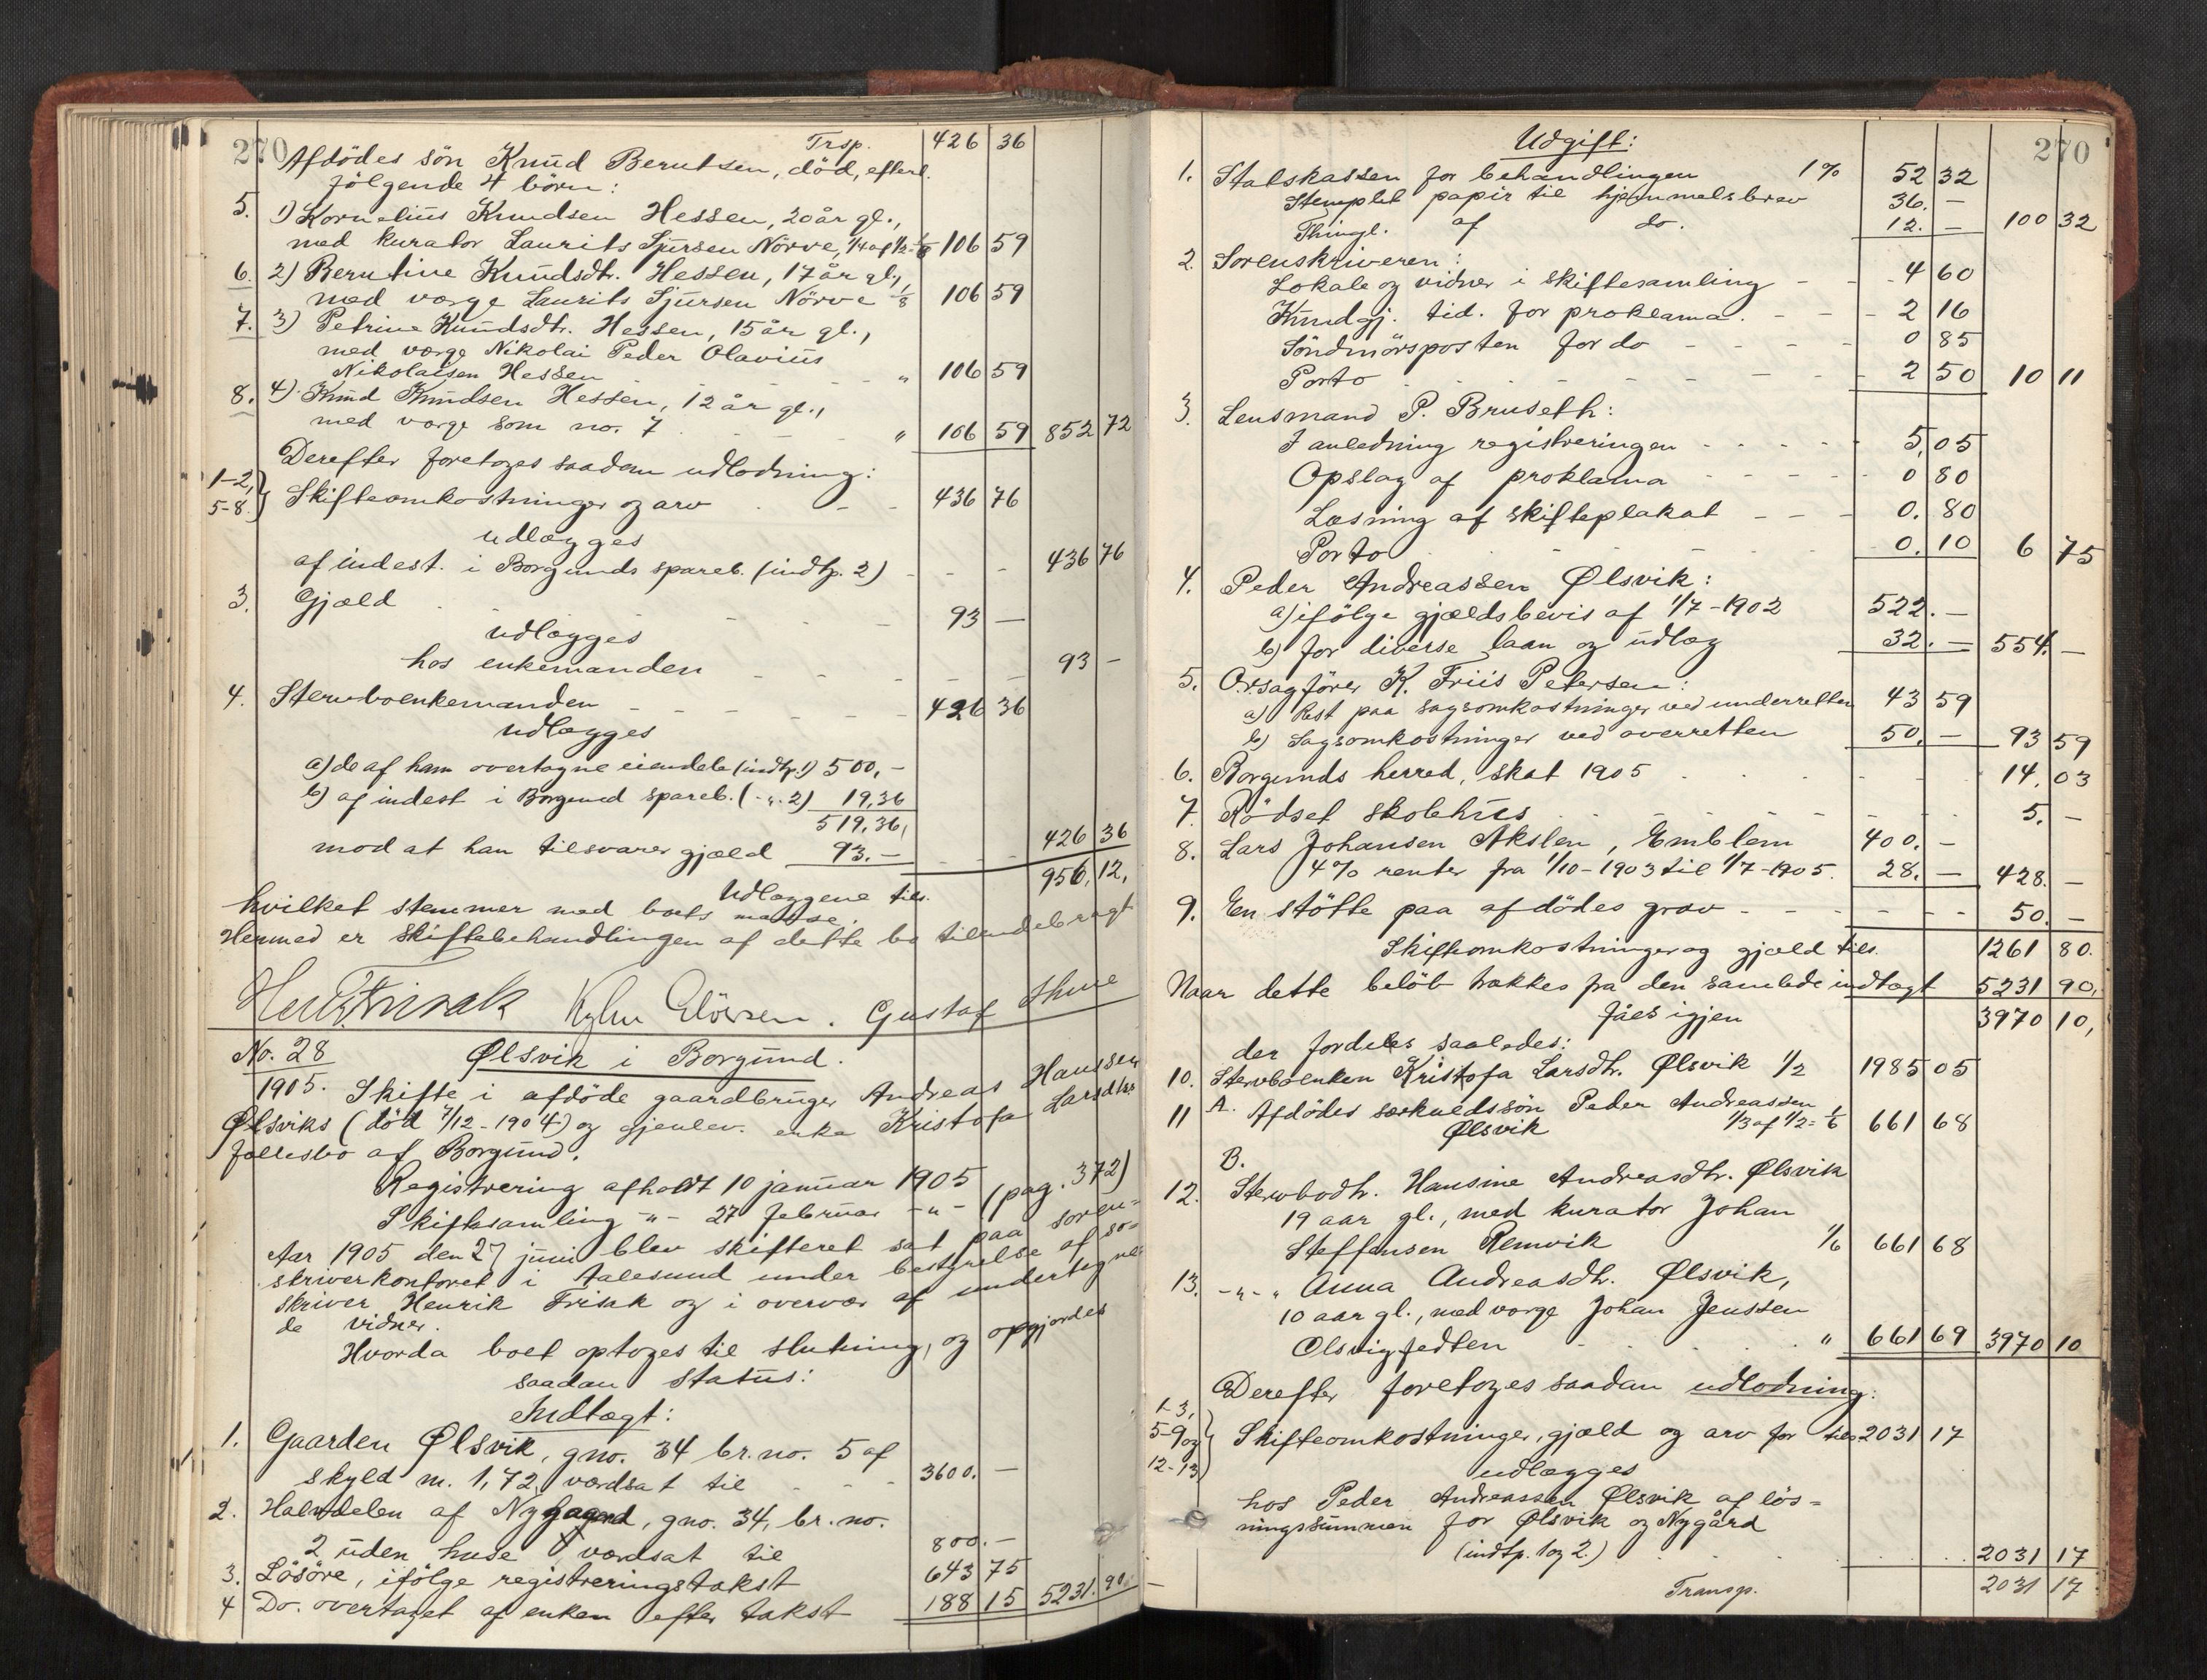 270
Trsp. 426 36
Afdödes sön Knud Berntsen, död, efterl.
følgende 4 börn:
5. 1) Kornelius Knudsen Hessen, 20 år gl.,
med kurator Laurits Sjursen Nörve, 1/4 af 1/2 = 1/8 106 59
6. 2) Berntine Knudsdtr. Hessen, 17 år gl.,
med værge Laurits Sjursen Nörve 1/8 106 59
7. 3) Petrine Knudsdtr. Hessen, 15 år gl.,
med værge Nikolai Peder Olavius
Nikolaisen Hessen - - - " 106 59
8. 4) Knud Knudsen Hessen, 12 år gl.,
med værge som no. 7 - - " 106 59 852 72
Derefter foretoges saadan udlodning:
1-2, 5-8. } Skifteomkostninger og arv - - 436 76
udlægges
af indest. i Borgunds spareb. (indtp. 2) - - - 436 76
3. Gjæld - - - 93 —
udlægges
hos enkemanden - - - 93 -
4. Stervboenkemanden - - - 426 36
udlægges
a) de af ham overtagne eiendele (indtp. 1) 500,-
b) af indest i Borgund spareb. ( - " - 2) 19,36
519,36,
mod at han tilsvarer gjæld 93.— - - 426 36
Udlæggene tils. 956, 12,
hvilket stemmer med boets masse.
Hermed er skiftebehandlingen af dette bo tilendebragt
Henr Frisak Gustaf Thue
No. 28 Ølsvik i Borgund.
1905. Skifte i afdöde gaardbruger Andreas Hanssen
Ølsviks (död 7/12 - 1904) og gjenlev. enke Kristofa Larsdtrs
fællesbo af Borgund.
Registrering afholdt 10 januar 1905 (pag. 372)
Skiftesamling - " - 27 februar - " -
Aar 1905 den 27 juni blev skifteret sat paa soren-
skriverkontoret i Aalesund under bestyrelse af so-
skriver Henrik Frisak og i overvær af undertegne-
de vidner.
Hvorda boet optoges til slutning, og opgjordes
saadan status:
Indtægt:
1. Gaarden Ølsvik, gno. 34 br. no. 5 af
skyld m. 1,72, værdsat til - - - 3600. —
2. Halvdelen af Nygaard, gno. 34, br. no.
2 uden huse, værdsat til 800. —
3. Lösöre, ifölge registreringstakst 643 75
4 Do. overtaget af enken efter takst 188 15 5231. 90.
270
Udgift:
1. Statskassen for behandlingen 1 % 52 32
Stemplet papir til hjemmelsbrev 36. —
Thingl. af do. 12. — 100 32
2. Sorenskriveren:
Lokale og vidner i skiftesamling - - - 4 60
Kundgj. tid. for proklama. - - - 2 16
Söndmörsposten for do - - - - 0 85
Porto - - - - 2 50 10 11
3. Lensmand P. Bruseth:
I anledning registreringen - - - - 5,05
Opslag af proklama - - - - 0 80
Læsning af skifteplakat - - - 0. 80
Porto - - - 0. 10 6 75
4. Peder Andreassen Ølsvik:
a) ifölge gjældsbevis af 1/7 - 1902 522. —
b) for diverse laan og udlæg 32. — 554. —
5. Orsagförer K. Friis Petersen:
a) Rest paa sagsomkostninger ved underretten 43 59
b) Sagsomkostninger ved overretten 50. — 93 59
6. Borgunds herred, skat 1905 - - - 14. 03
7. Rödset skolehus - - - 5. —
8. Lars Johansen Akslen, Emblem 400. —
4% renter fra 1/10 - 1903 til 1/7 - 1905. 28. — 428. —
9. En stötte paa afdödes grav - - - 50. —
Skifteomkostninger og gjæld tils. 1261 80.
Naar dette belöb trækkes fra den samlede indtægt 5231 90,
fåes igjen 3970 10,
der fordeles saaledes:
10. Stervboenken Kristofa Larsdtr. Ølsvik 1/2 1985 05
11 A. Afdödes særkuldssön Peder Andreassen
Ølsvik 1/3 af 1/2 = 1/6 661 68
B.
12. Stervbodtr. Hansine Andreasdtr. Ølsvik
19 aar gl., med kurator Johan
Steffensen Remvik 1/6 661 68
13. - " - " Anna Andreasdtr. Ølsvik,
10 aar gl., med værge Johan Jenssen
Olsvigfedten - - - " 661 69 3970 10
Derefter foretoges saadan udlodning:
1-3, 5-9 og 12-13 } Skifteomkostninger, gjæld og arv for tils 2031 17
udlægges
hos Peder Andreassen Ølsvik af lös-
ningssummen for Ølsvik og Nygård
(indtp. 1 og 2.) - - - 2031 17
Transp. 2031 17